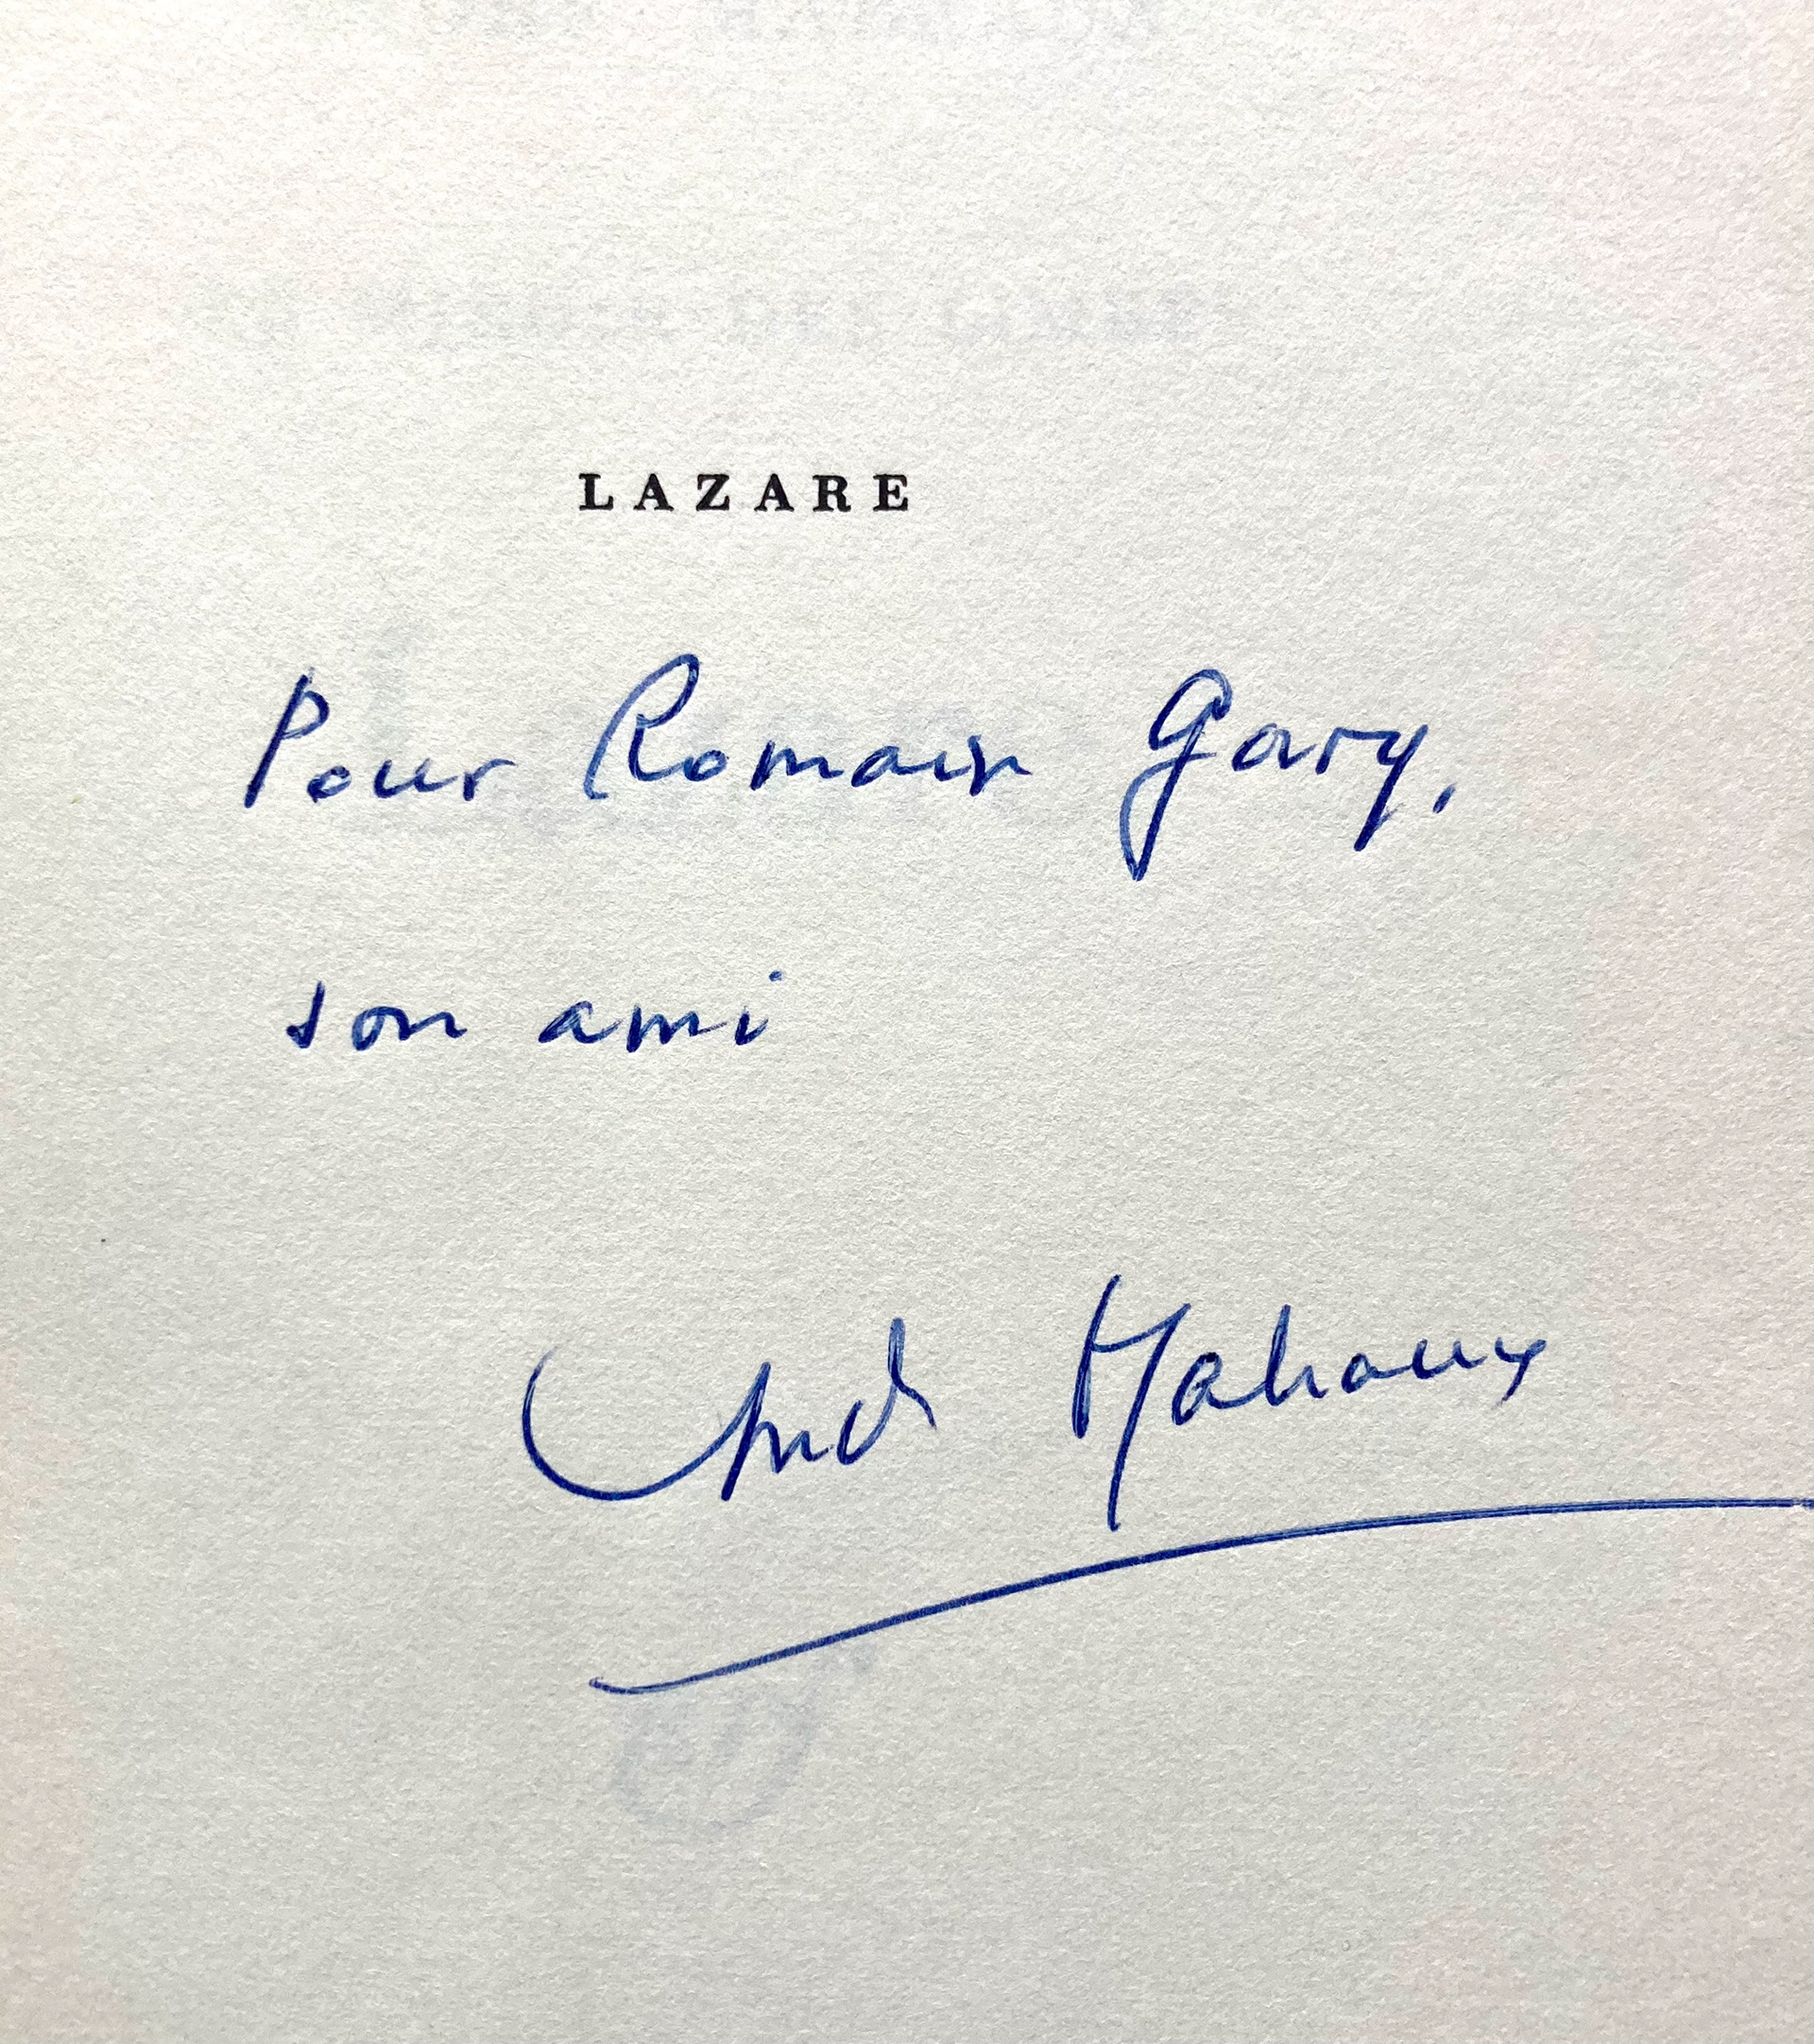 LAZARE
Pour Romain Gary,
son ami
André Malraux